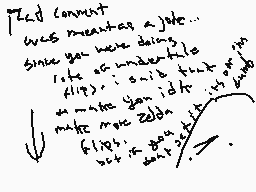 That comment
was meant as a joke...
since you were doing
lots of undertale
flips, i said that
to make you idk
make more zelda
flips.
but if you
dont get it its ok im
dumb